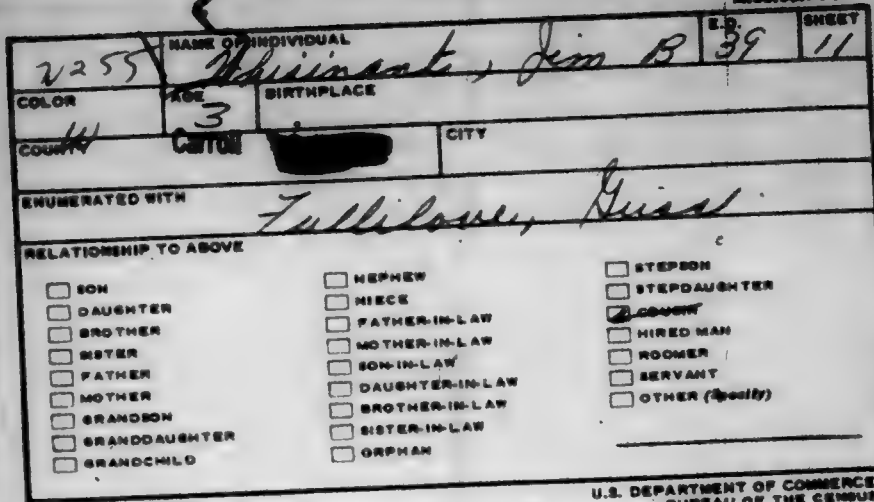 NAME OF INDIVIDUAL E.D. SHEET
Whisinant, Jim B 39 11
COLOR AGE BIRTHPLACE
W 3
COUNTY Carroll CITY
ENUMERATED WITH
Fullilove, Guss
RELATIONSHIP TO ABOVE
SON
DAUGHTER
BROTHER
SISTER
FATHER
MOTHER
GRANDSON
GRANDDAUGHTER
GRANDCHILD
NEPHEW
NIECE
FATHER-IN-LAW
MOTHER-IN-LAW
SON-IN-LAW
DAUGHTER-IN-LAW
BROTHER-IN-LAW
SISTER-IN-LAW
ORPHAN
STEPSON
STEPDAUGHTER
COUSIN
HIRED MAN
ROOMER
SERVANT
OTHER (Specify)
U.S. DEPARTMENT OF COMMERCE
BUREAU OF THE CENSUS